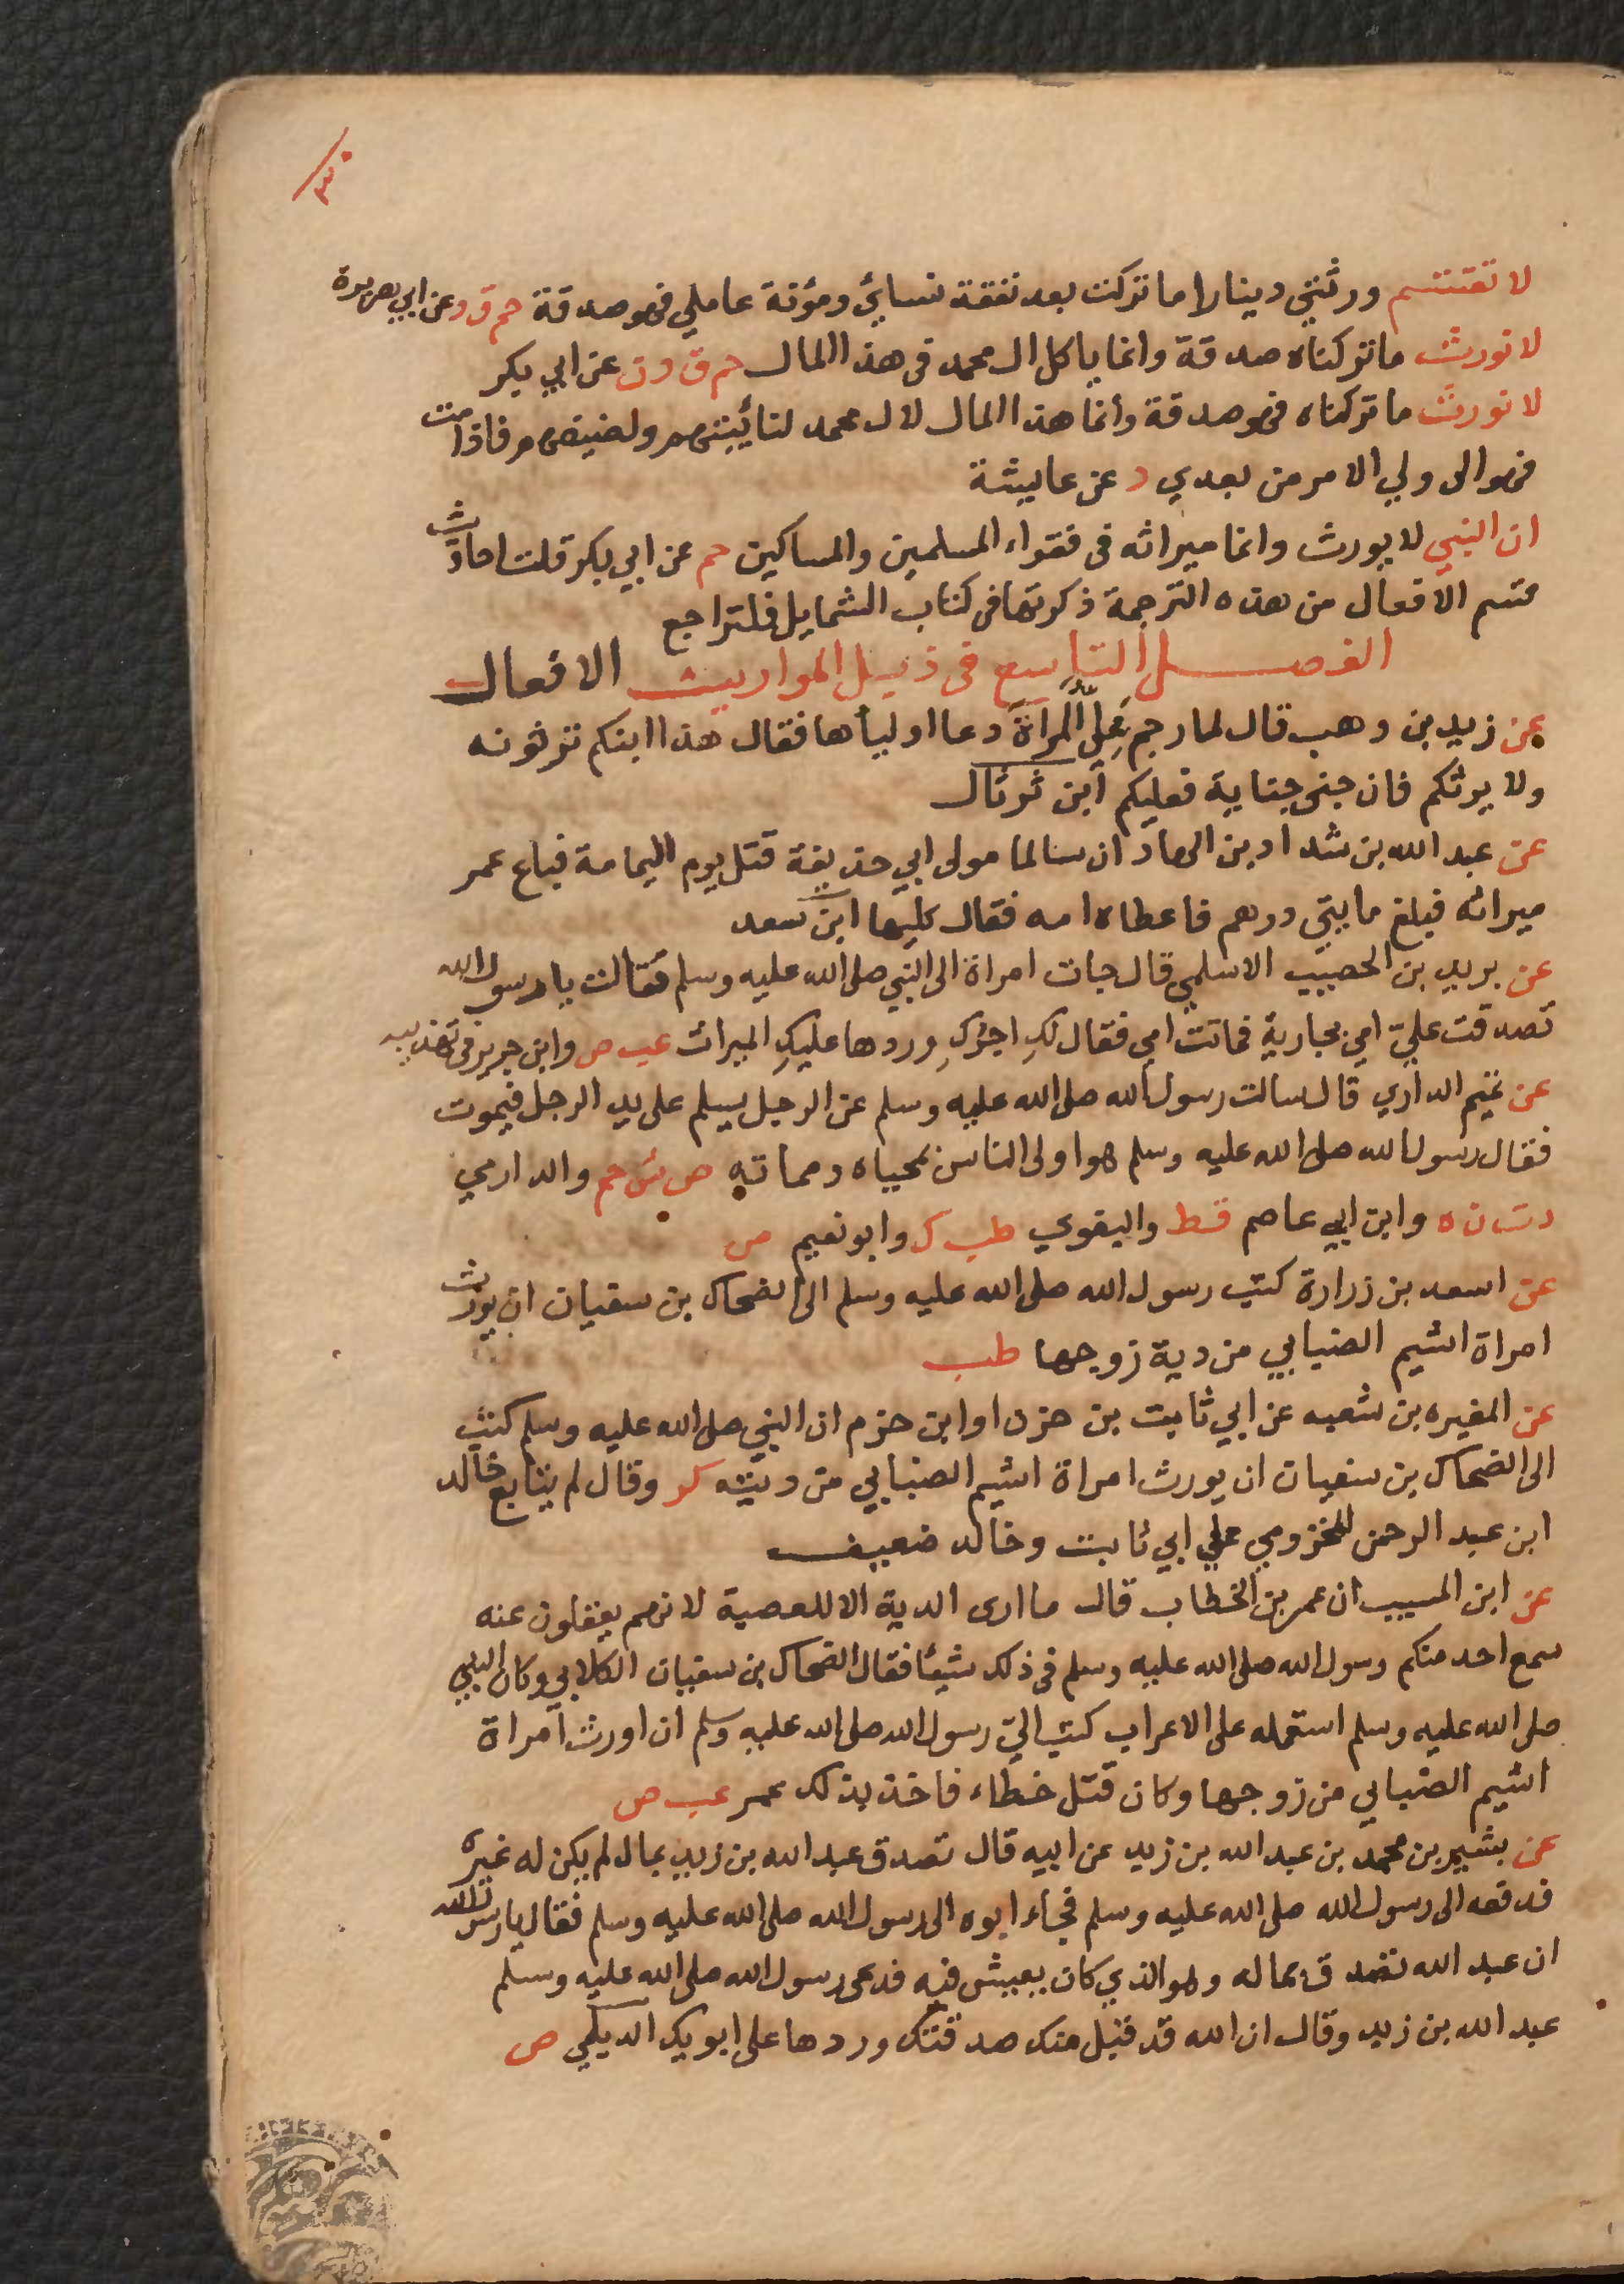 ٣٠
لا تقتسم ورثتي دينارا ما تركت بعد نفقة نسائي ومؤنة عاملي فهو صدقة حم ق د عن ابي هريرة
لا نورث ما تركناه صدقة وانما ياكل ال محمد في هذا المال حم ق د ن عن ابي بكر
لا نورث ما تركناه فهو صدقة وانما هذا المال لال محمد لنائبتهم ولضيفهم فاذا مت
فهو الى ولي الامر من بعدي د عن عايشة
ان النبي لا يورث وانما ميراثه في فقراء المسلمين والمساكين حم عن ابي بكر قلت احاديث
قسم الافعال من هذه الترجمة ذكرتها في كتاب الشمايل فلتراجع
الفصل التاسع في ذيل المواريث الافعال
عن زيد بن وهب قال لما رجم علي المراة دعا اولياها فقال هذا ابنكم ترثونه
ولا يرثكم فان جنى جناية فعليكم ابن ثرثال
عن عبد الله بن شداد بن الهاد ان سالما مولى ابي حذيفة قتل يوم اليمامة فباع عمر
ميراثه فبلغ مايتي درهم فاعطاه امه فقال كليها ابن سعد
عن بريد بن الحصيب الاسلمي قال جات امراة الى النبي صلى الله عليه وسلم فقالت يا رسول الله
تصدقت على امي بجارية فماتت امي فقال لكِ اجركِ وردها عليكِ الميراث عب ص وابن جرير في تهذيبه
عن تميم الداري قال سالت رسول الله صلى الله عليه وسلم عن الرجل يسلم على يد الرجل فيموت
فقال رسول الله صلى الله عليه وسلم هو اولى الناس بمحياه ومماته ص ش حم والدارمي
د ت ن ه وابن ابي عاصم قط والبغوي طب ك وابو نعيم ص
عن اسعد بن زرارة كتب رسول الله صلى الله عليه وسلم الى الضحاك بن سفيان ان يورث
امراة اشيم الضبابي من دية زوجها طب
عن المغيره بن شعبه عن ابي ثابت بن حزن او ابن حزم ان النبي صلى الله عليه وسلم كتب
الى الضحاك بن سفيان ان يورث امراة اشيم الضبابي من ديته كر وقال لم يتابع خالد
ابن عبد الرحمن المخزومي على ابي ثابت وخالد ضعيف
عن ابن المسيب ان عمر بن الخطاب قال ما ارى الدية الا للعصبة لانهم يعقلون عنه
سمع احد منكم رسول الله صلى الله عليه وسلم في ذلك شيئا فقال الضحاك بن سفيان الكلابي وكان النبي
صلى الله عليه وسلم استعمله على الاعراب كتب اليّ رسول الله صلى الله عليه وسلم ان اورث امراة
اشيم الضبابي من زوجها وكان قتل خطاء فاخذ بذلك عمر عب ص
عن بشير بن محمد بن عبد الله بن زيد عن ابيه قال تصدق عبد الله بن زيد بمال لم يكن له غيره
فدفعه الى رسول الله صلى الله عليه وسلم فجاء ابوه الى رسول الله صلى الله عليه وسلم فقال يا رسول الله
ان عبد الله تصدق بماله وهو الذي كان يعيش فيه فدعى رسول الله صلى الله عليه وسلم
عبد الله بن زيد وقال ان الله قد قبل منك صدقتك وردها على ابويك الديلمي ص